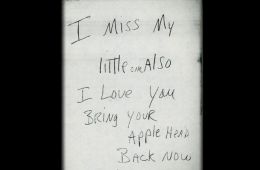 I Miss My
little one Also
I Love You
Bring Your
Apple Head
Back Now